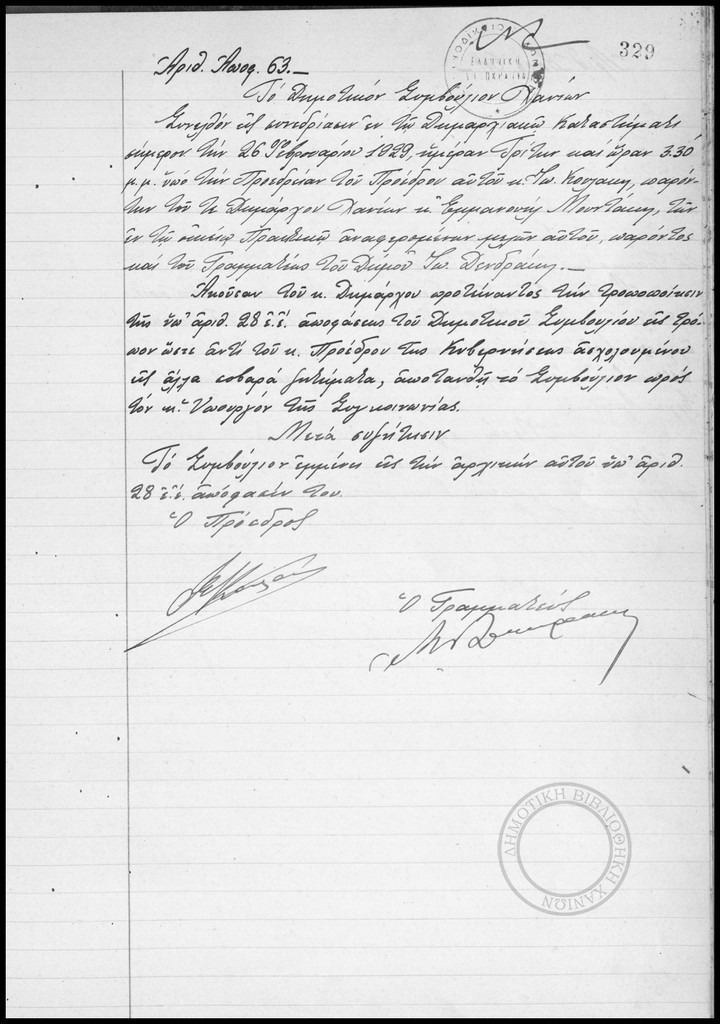 329
ΕΛΛΗΝΙΚΗ
Ἀριθ. Ἀποφ. 63.—
Τό Δημοτικόν Συμβούλιον Χανίων
Συνελθόν εἰς συνεδρίασιν ἐν τῷ Δημαρχιακῷ Καταστήματι
σήμερον τήν 26 Φεβρουαρίου 1929, ἡμέραν Τρίτην καί ὥραν 3.30'
μ.μ. ὑπό τήν Προεδρείαν τοῦ Προέδρου αὐτοῦ κ. Ἰω. Κουλακη, παρόν-
τος τοῦ κ. Δημάρχου Χανίων κ. Ἐμμανουήλ Μουντάκη, τῶν
ἐν τῷ οἰκείῳ Πρακτικῷ ἀναφερομένων μελῶν αὐτοῦ, παρόντος
καί τοῦ Γραμματέως τοῦ Δήμου Ἰω. Δενδράκη.—
Ἀκούσαν τοῦ κ. Δημάρχου προτείναντος τήν τροποποίησιν
τῆς ὑπ' ἀριθ. 28 ἐ.ἔ. ἀποφάσεως τοῦ Δημοτικοῦ Συμβουλίου εἰς τρό-
πον ὥστε ἀντί τοῦ κ. Προέδρου της Κυβερνήσεως ἀσχολουμένου
εἰς ἄλλα σοβαρά ζητήματα, ἀποτανθῇ τό Συμβούλιον πρός
τόν κ. Ὑπουργόν τῆς Συγκοινωνίας.
Μετά συζήτησιν
Τό Συμβούλιον ἐμμένει εἰς τήν ἀρχικήν αὐτοῦ ὑπ' ἀριθ.
28 ἐ.ἔ. ἀπόφασίν του.
Ὁ Πρόεδρος
Ὁ Γραμματεύς
ΔΗΜΟΤΙΚΗ ΒΙΒΛΙΟΘΗΚΗ ΧΑΝΙΩΝ